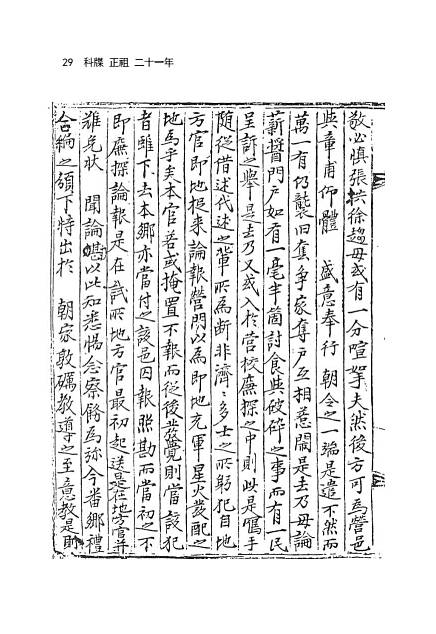 29 科牒 正祖 二十一年
敬必愼張拱徐趨毋或有一分喧挐夫然後方可爲營邑
與章甫仰體 盛意奉行 朝令之一端是遣不然而
萬一有仍襲旧套爭家奪戶互相惹閙是去乃毋論
薪醬門戶如有一毫半箇討食與破碎之事而有一民
呈訴之擧是去乃又或入於營校廉探之中則此是鴈手
隨從借述代述之輩所爲斷非濟〻多士之所躬犯自地
方官即地捉来論報營門以爲即地充軍星火發配之
地爲乎矣本官若或掩置不報而從後發覺則當該犯
者雖下去本鄉亦當付之該邑因報照勘而當初之不
即廉探論報是在試所地方官最初起送是在地方官並
難免狀 聞論以此知悉惕念察飭爲旀今番鄉禮
合編之頒下特出於 朝家敦礪敎導之至意敎是則